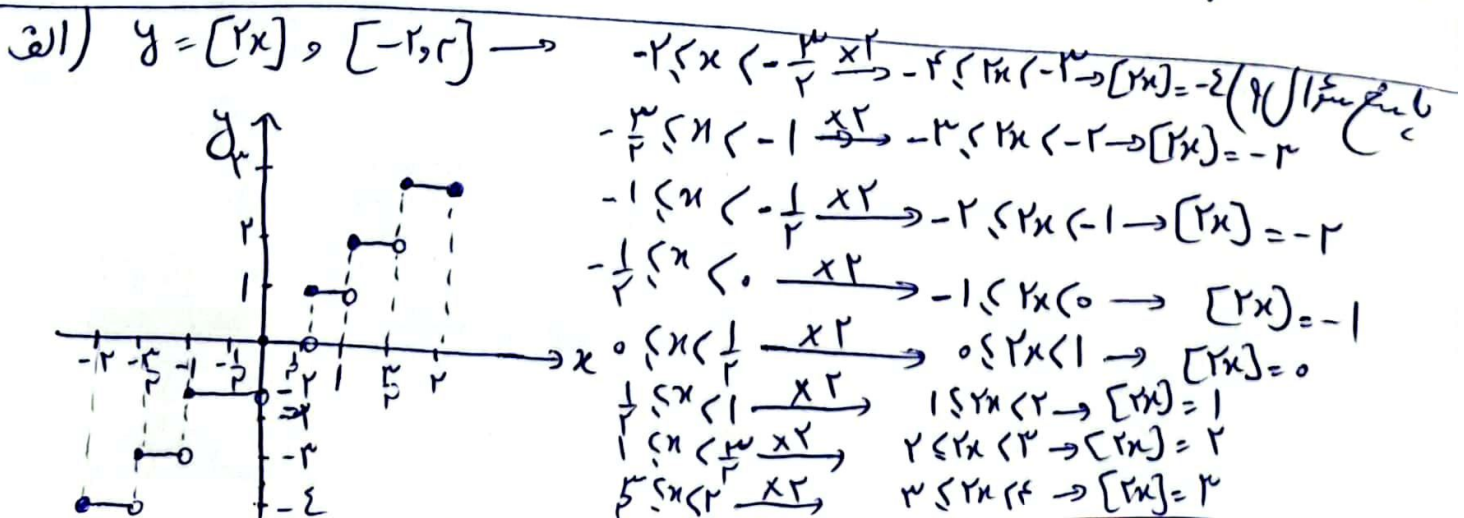 الف) y = [۲x] , [-۲,۲] →
-۲ ≤ x < -۳/۲ ×۲→ -۴ ≤ ۲x < -۳ → [۲x] = -٤
پاسخ سؤال ۹)
-۳/۲ ≤ x < -۱ ×۲→ -۳ ≤ ۲x < -۲ → [۲x] = -۳
-۱ ≤ x < -۱/۲ ×۲→ -۲ ≤ ۲x < -۱ → [۲x] = -۲
-۱/۲ ≤ x < ۰ ×۲→ -۱ ≤ ۲x < ۰ → [۲x] = -۱
۰ ≤ x < ۱/۲ ×۲→ ۰ ≤ ۲x < ۱ → [۲x] = ۰
۱/۲ ≤ x < ۱ ×۲→ ۱ ≤ ۲x < ۲ → [۲x] = ۱
۱ ≤ x < ۳/۲ ×۲→ ۲ ≤ ۲x < ۳ → [۲x] = ۲
۳/۲ ≤ x < ۲ ×۲→ ۳ ≤ ۲x < ۴ → [۲x] = ۳
y
۳
۲
۱
-۲ -۳/۲ -۱ -۱/۲ ۱/۲ ۱ ۳/۲ ۲ x
-۲
-۳
-٤